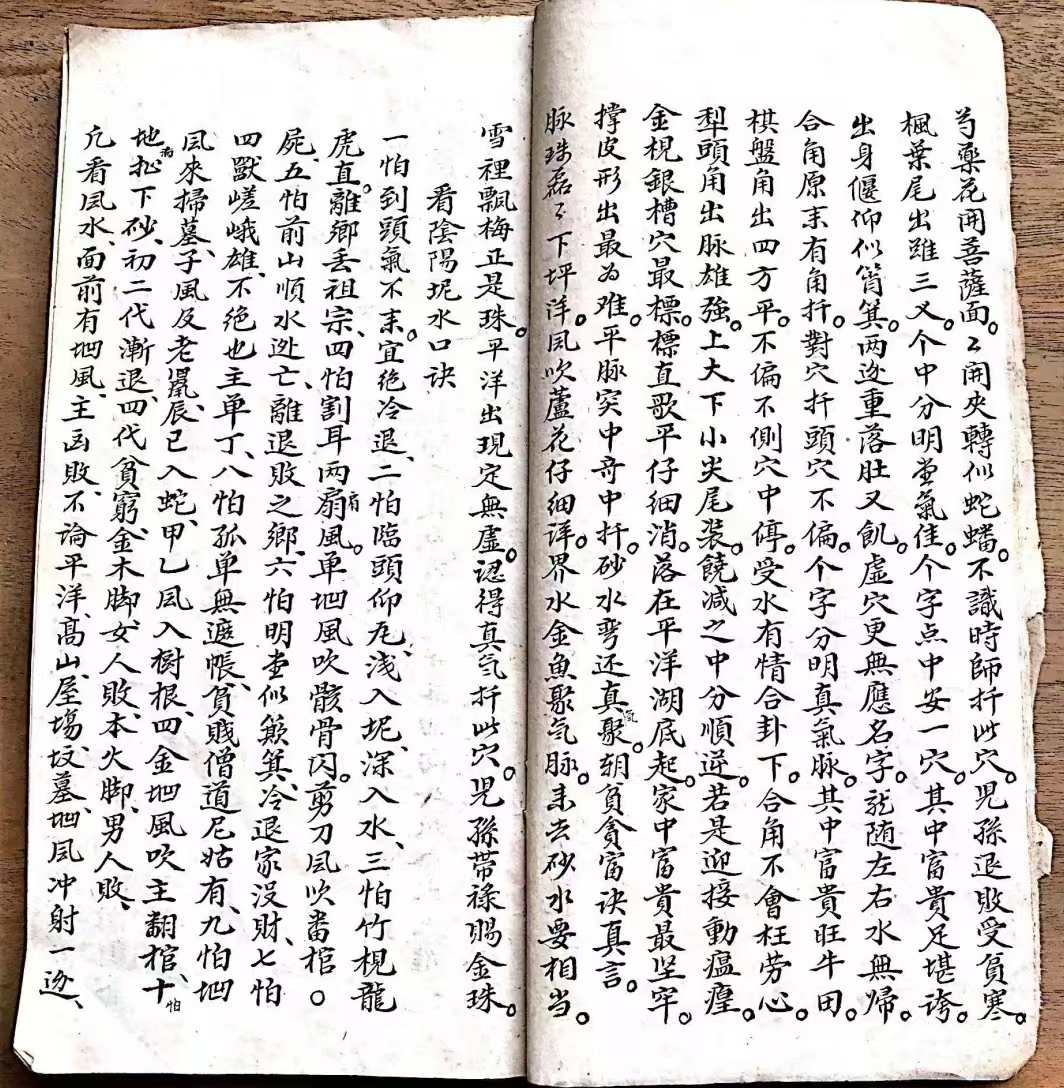 芍藥花開菩薩面。〻開夾轉似蛇蟠。不識時師扦此穴。児孫退敗受貧寒。
楓葉尾出雖三义。个中分明堂氣佳。个字点中安一穴。其中富貴足堪誇。
出身偃仰似筲箕。两边重落肚又飢。虛穴更無應名字。龍随左右水無帰。
合角原来有角扦。對穴扦頭穴不偏。个字分明真氣脉。其中富貴旺牛田。
棋盤角出四方平。不偏不側穴中停。受水有情合卦下。合角不會枉劳心。
犁頭角出脉雄強。上大下小尖尾装。饒减之中分順逆。若是迎接動瘟㾮。
金梘銀槽穴最標。標直歌平仔細消。落在平洋湖底起。家中富貴最坚牢。
撑皮形出最为难。平脉突中奇中扦。砂水弯还真氣聚。朝貧貪富诀真言。
脉珠磊〻下坪洋。凨吹蘆花仔细详。界水金魚聚气脉。来去砂水要相当。
雪裡飄梅正是珠。平洋出現定無虚。認得真气扦此穴。児孫带禄賜金珠。
看陰陽坭水口诀
一怕到頭氣不来。宜绝冷退、二怕臨頭仰凢、浅入坭、深入水、三怕竹梘龍
虎直。離鄉丢祖宗、四怕割耳两扇肩風。单凹風吹骸骨闪。剪刀凨吹畨棺。
屍、五怕前山順水迯亡、離退敗之鄉、六怕明堂似簸箕、冷退家没財、七怕
四獸嵯峨雄、不绝也主单丁、八怕孤单無遮帳、貧賤僧道尼姑有、九怕凹
凨來掃墓、子風及老鼠、辰巳入蛇、甲乙凨入樹根、四金凹風吹主翻棺、十怕
地扯下砂、初二代漸退、四代貧窮、金木脚、女人敗、本火脚、男人敗、
凢看凨水、面前有凹風、主凾敗、不論平洋、髙山、屋塲、坟墓、凹凨冲射一边、